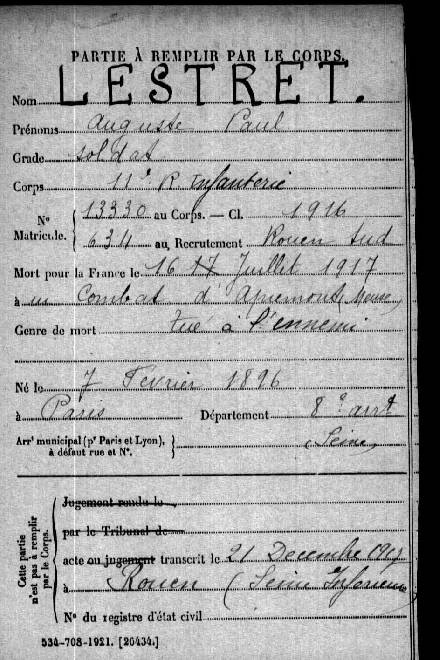 PARTIE À REMPLIR PAR LE CORPS.
Nom LESTRET.
Prénoms Auguste Paul
Grade soldat
Corps 11e R. Infanterie
N° Matricule. 13330 au Corps. — Cl. 1916
634 au Recrutement Rouen Sud
Mort pour la France le 16 17 Juillet 1917
à au Combat d'Apremont (Meuse)
Genre de mort tué à l'ennemi
Né le 7 Février 1896
à Paris Département 8e arrt
Arrt municipal (pr Paris et Lyon), à défaut rue et N°. (Seine)
Cette partie n'est pas à remplir par le Corps.
Jugement rendu le
par le Tribunal de
acte ou jugement transcrit le 21 Décembre
à Rouen (Seine Inférieure)
N° du registre d'état civil
534-708-1921. [26434.]